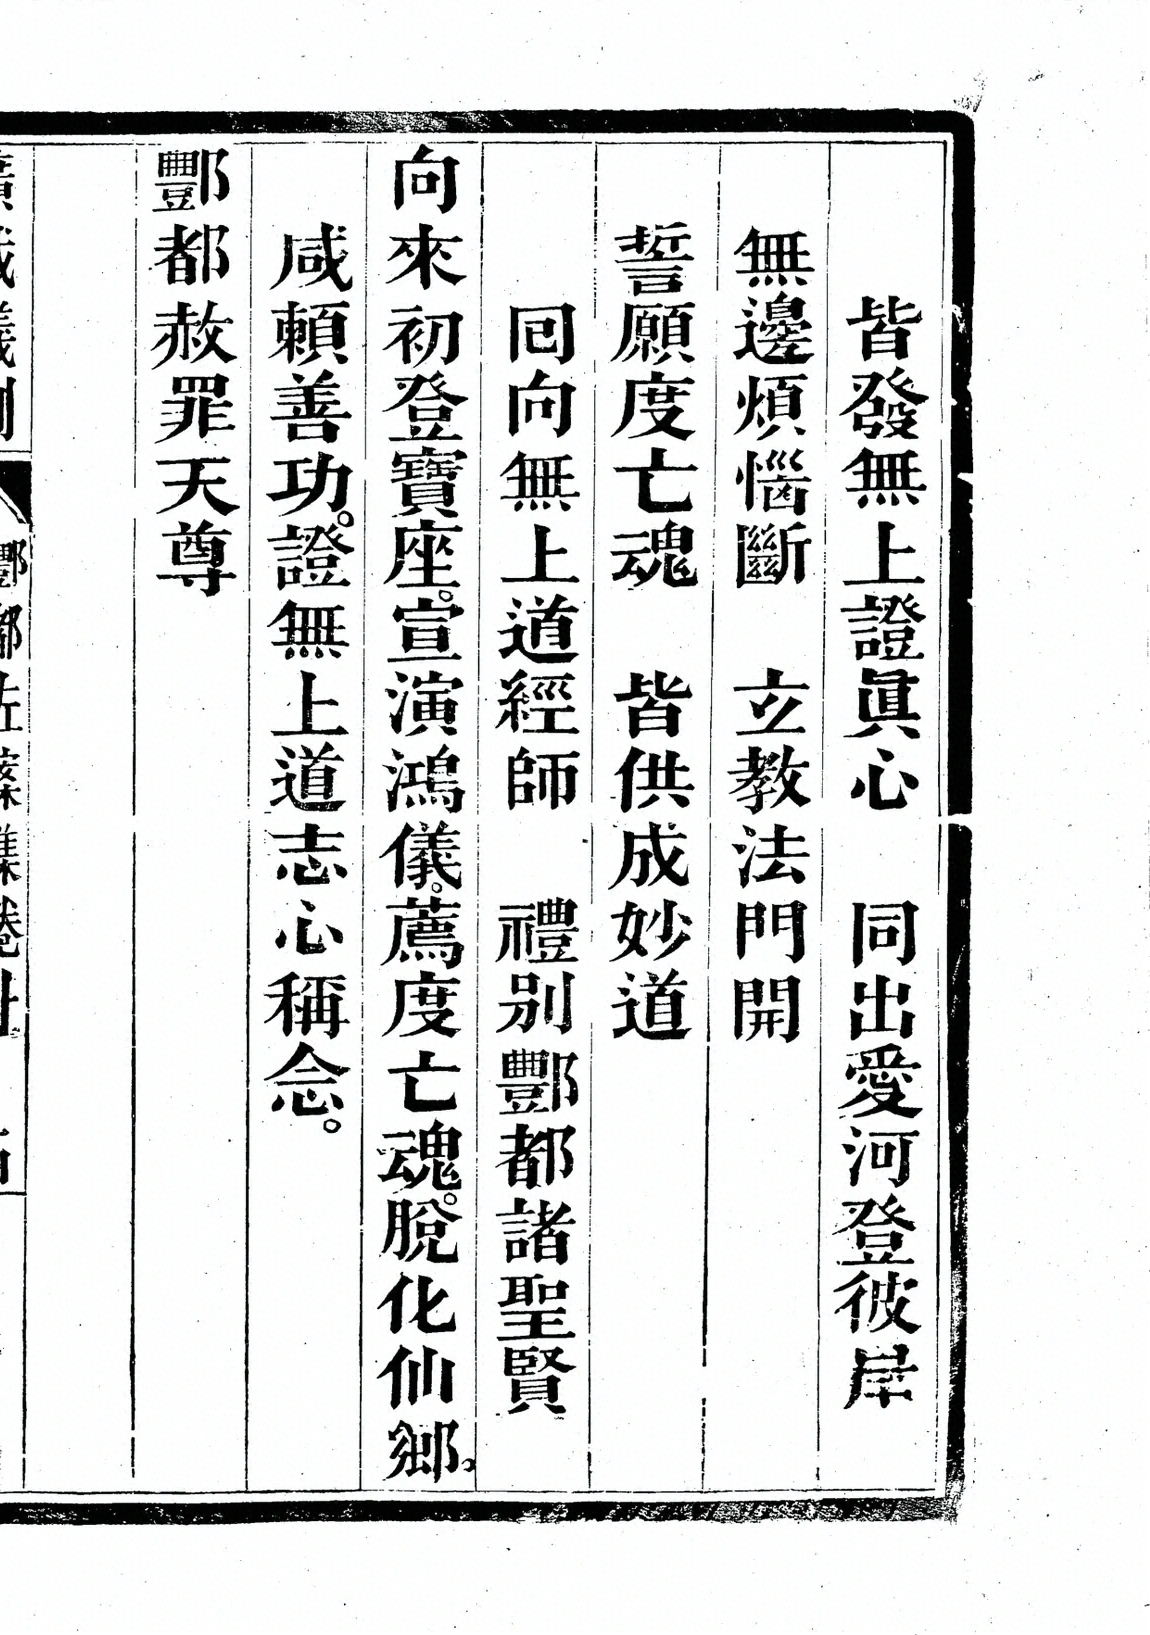 皆發無上證眞心　同出愛河登彼岸
無邊煩惱斷　立教法門開
誓願度亡魂　皆供成妙道
囘向無上道經師　禮別酆都諸聖賢
向來初登寶座。宣演鴻儀。薦度亡魂。脫化仙鄉。
咸賴善功。證無上道志心稱念。
酆都赦罪天尊
酆都
卷